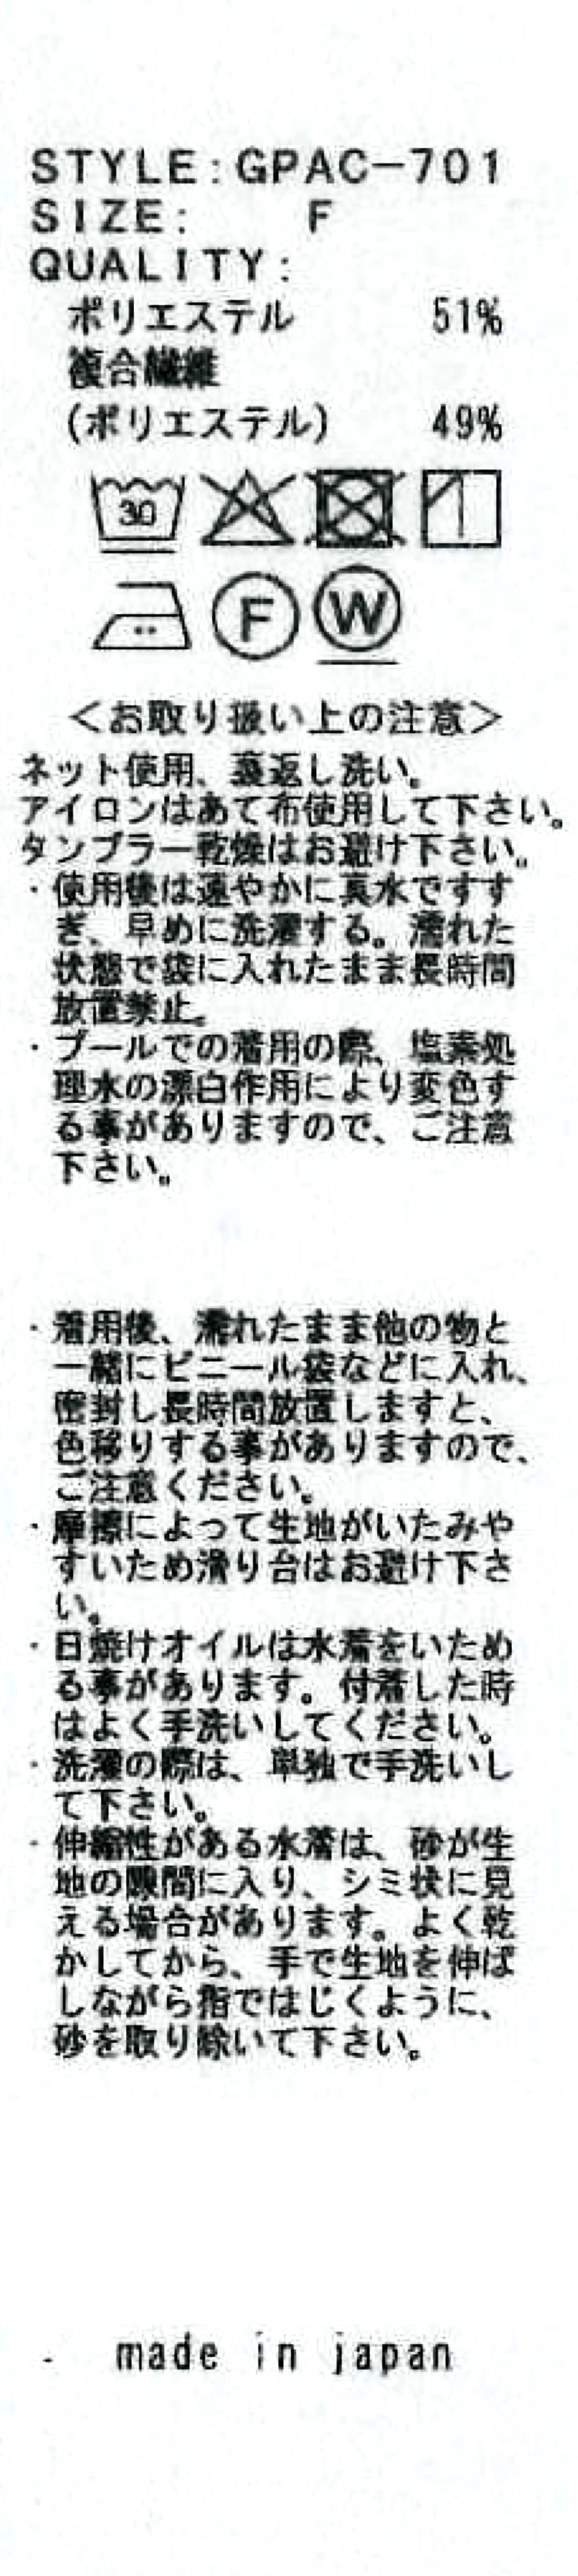 STYLE:GPAC-701
SIZE: F
QUALITY:
ポリエステル 51%
複合繊維
(ポリエステル) 49%
30
F W
＜お取り扱い上の注意＞
ネット使用、裏返し洗い。
アイロンはあて布使用して下さい。
タンブラー乾燥はお避け下さい。
・使用後は速やかに真水ですす
ぎ、早めに洗濯する。濡れた
状態で袋に入れたまま長時間
放置禁止。
・プールでの着用の際、塩素処
理水の漂白作用により変色す
る事がありますので、ご注意
下さい。
・着用後、濡れたまま他の物と
一緒にビニール袋などに入れ、
密封し長時間放置しますと、
色移りする事がありますので、
ご注意ください。
・摩擦によって生地がいたみや
すいため滑り台はお避け下さ
い。
・日焼けオイルは水着をいため
る事があります。付着した時
はよく手洗いしてください。
・洗濯の際は、単独で手洗いし
て下さい。
・伸縮性がある水着は、砂が生
地の隙間に入り、シミ状に見
える場合があります。よく乾
かしてから、手で生地を伸ば
しながら指ではじくように、
砂を取り除いて下さい。
made in japan